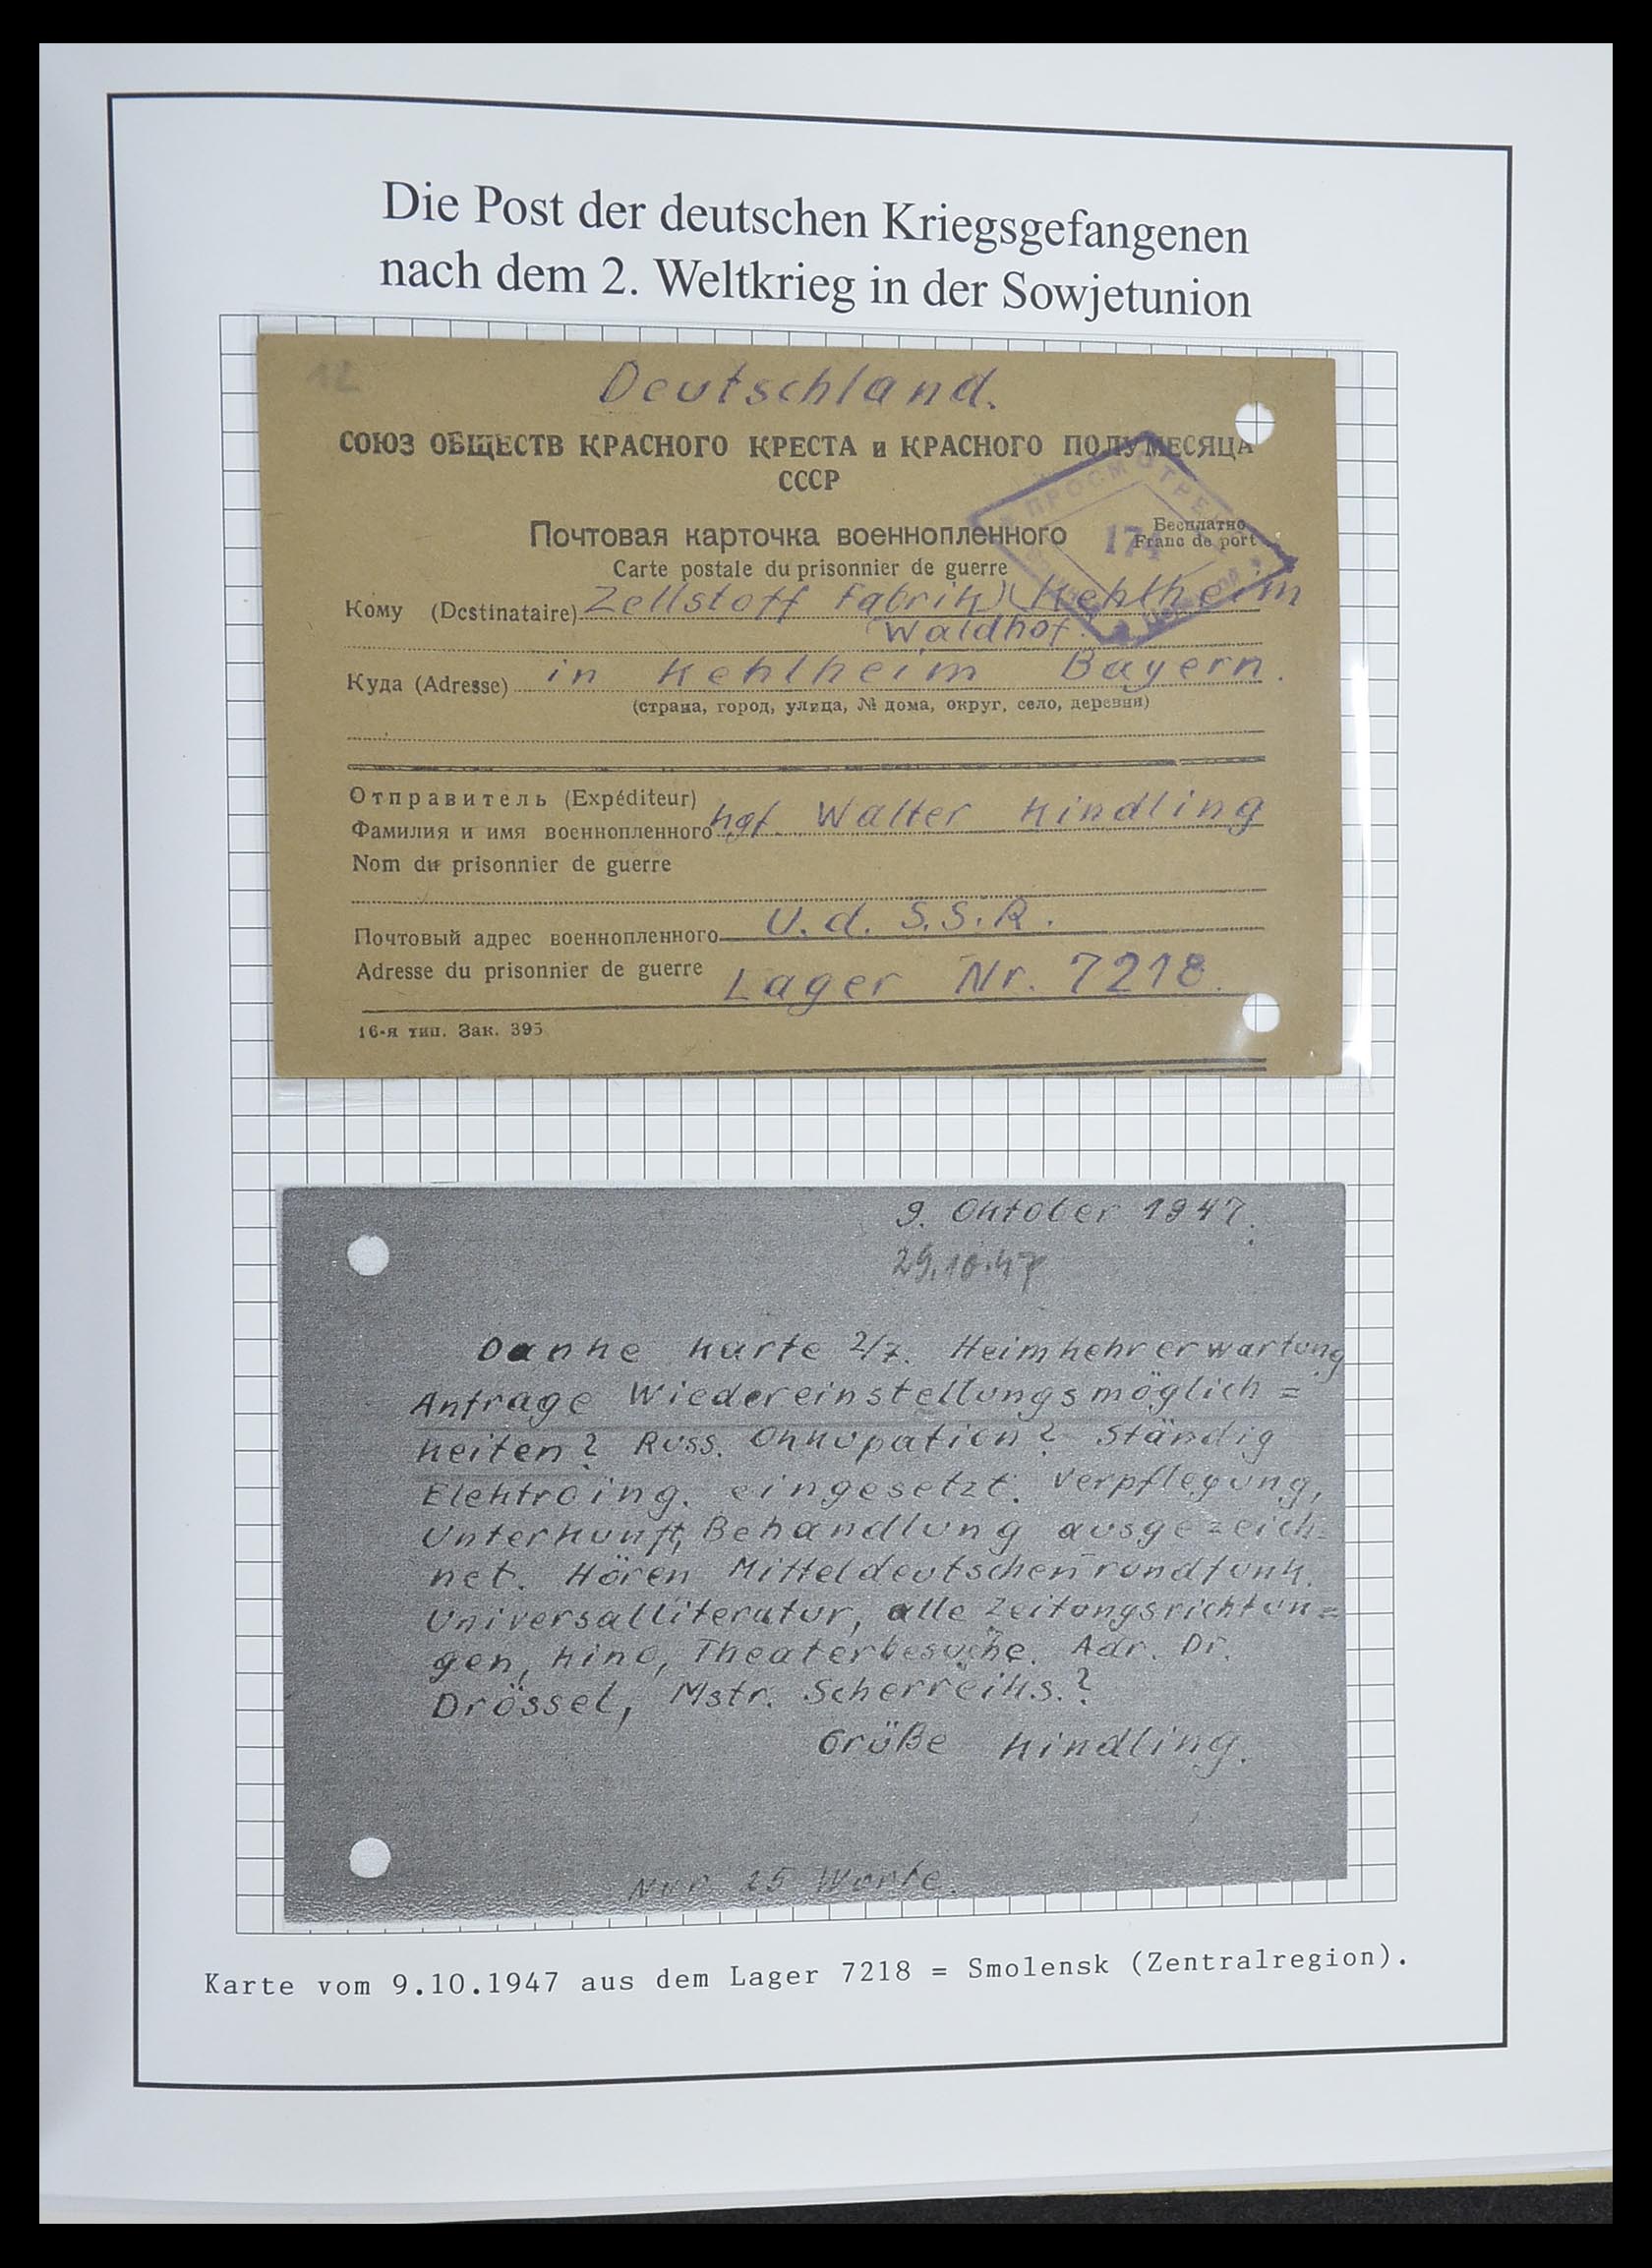 Die Post der deutschen Kriegsgefangenen
nach dem 2. Weltkrieg in der Sowjetunion
12
Deutschland.
СОЮЗ ОБЩЕСТВ КРАСНОГО КРЕСТА и КРАСНОГО ПОЛУМЕСЯЦА
СССР
ПРОСМОТРЕНО
174
Почтовая карточка военнопленного
Бесплатно
Franc de port
Carte postale du prisonnier de guerre
Кому (Destinataire) Zellstoff Fabrik) (Kehlheim
(Waldhof.
Куда (Adresse) in Kehlheim Bayern.
(страна, город, улица, № дома, округ, село, деревня)
Отправитель (Expéditeur)
Фамилия и имя военнопленного kgf. Walter Kindling
Nom du prisonnier de guerre
Почтовый адрес военнопленного U.d.S.S.R.
Adresse du prisonnier de guerre Lager Nr. 7218.
16-я тип. Зак. 395
9. Oktober 1947.
29.10.47
Danke Karte 2/7. Heimkehrerwartung
Anfrage Wiedereinstellungsmöglich=
keiten? Russ. Okkupation? Ständig
Elektroing. eingesetzt. Verpflegung,
Unterkunft, Behandlung ausgezeich=
net. Hören Mitteldeutschenrundfunk.
Universalliteratur, alle Zeitungsrichtun=
gen, Kino, Theaterbesuche. Adr. Dr.
Drössel, Mstr. Scherreiks.?
Grüße Kindling.
Nur 25 Worte.
Karte vom 9.10.1947 aus dem Lager 7218 = Smolensk (Zentralregion).